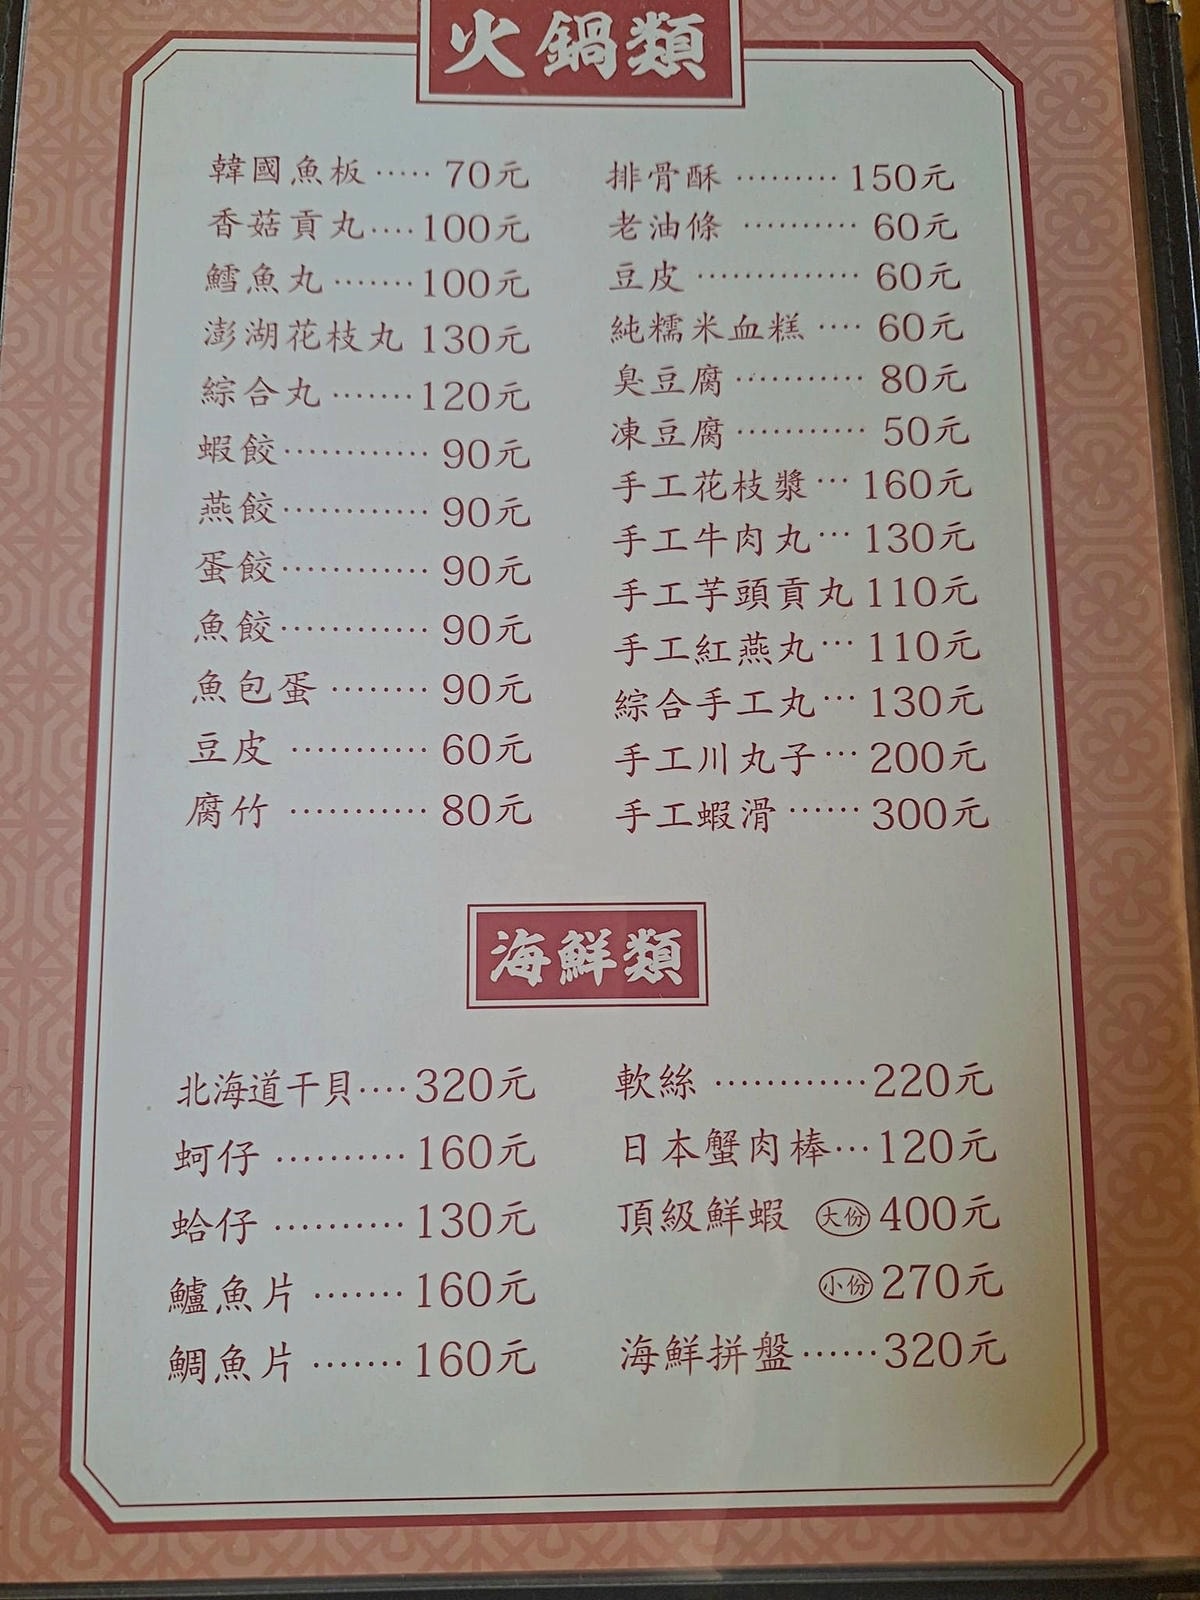 火鍋類
韓國魚板 ····· 70元
香菇貢丸 ···· 100元
鱈魚丸 ······· 100元
澎湖花枝丸 130元
綜合丸 ······· 120元
蝦餃 ············ 90元
燕餃 ············ 90元
蛋餃 ············ 90元
魚餃 ············ 90元
魚包蛋 ········ 90元
豆皮 ··········· 60元
腐竹 ··········· 80元
排骨酥 ········· 150元
老油條 ·········· 60元
豆皮 ·············· 60元
純糯米血糕 ···· 60元
臭豆腐 ··········· 80元
凍豆腐 ··········· 50元
手工花枝漿 ··· 160元
手工牛肉丸 ··· 130元
手工芋頭貢丸 110元
手工紅燕丸 ··· 110元
綜合手工丸 ··· 130元
手工川丸子 ··· 200元
手工蝦滑 ······ 300元
海鮮類
北海道干貝 ···· 320元
蚵仔 ·········· 160元
蛤仔 ·········· 130元
鱸魚片 ······· 160元
鯛魚片 ······· 160元
軟絲 ············ 220元
日本蟹肉棒 ··· 120元
頂級鮮蝦 大份 400元
小份 270元
海鮮拼盤 ······ 320元